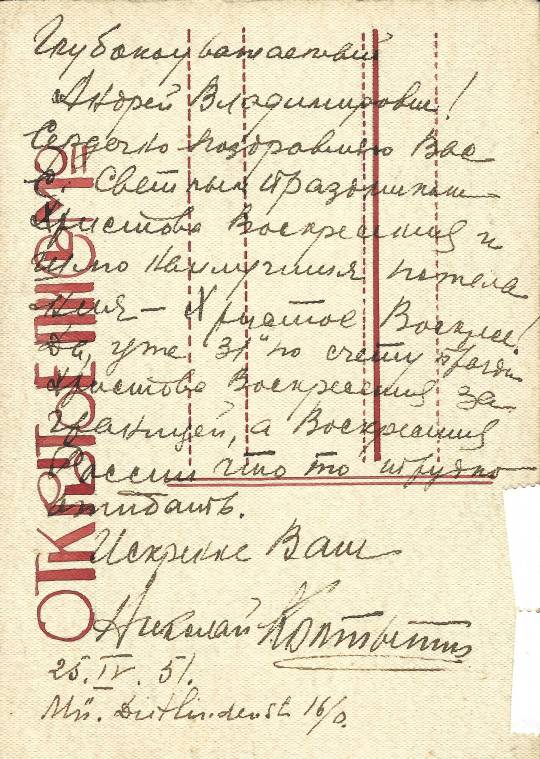 Глубокоуважаемый
Андрей Владимирович!
Сердечно поздравляю Вас
с Светлым праздником
Христова Воскресения и
шлю наилучшия пожела
ния — Христос Воскрес!
Да, уже 31й по счету праздн.
Христова Воскресения за
границей, а Воскресения
России что то трудно
ожидать.
Искренне Ваш
Николай
25.IV.51.
Mü. Dietlindenst 16/0.
ОТКРЫТОЕ ПИСЬМО